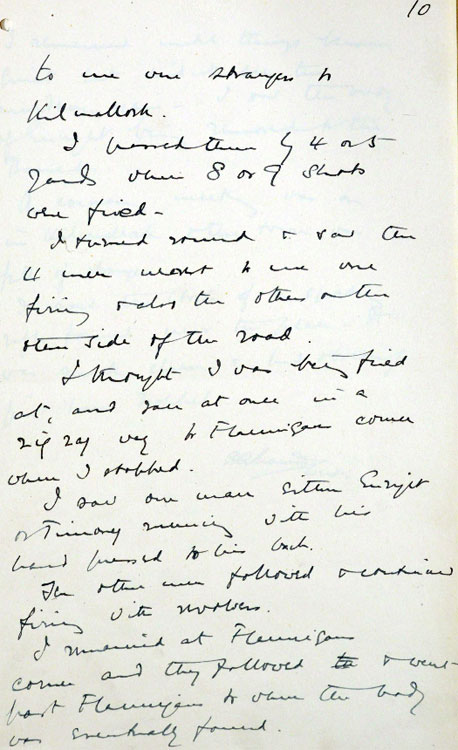 10
to me were strangers to
Kilmallock.
I passed them by 4 or 5
yards when 8 or 9 shots
were fired -
I turned round & saw the
4 men nearest to me were
firing & also the others on the
other side of the road.
I thought I was being fired
at, and ran at once in a
zig zag way to Flannigans corner
where I stopped.
I saw one man either Enright
or Timoney running with his
hand pressed to his back.
Ten other men followed & continued
firing with revolvers.
I remained at Flannigans
corner and they followed & went
past Flannigans to where the body
was eventually found.